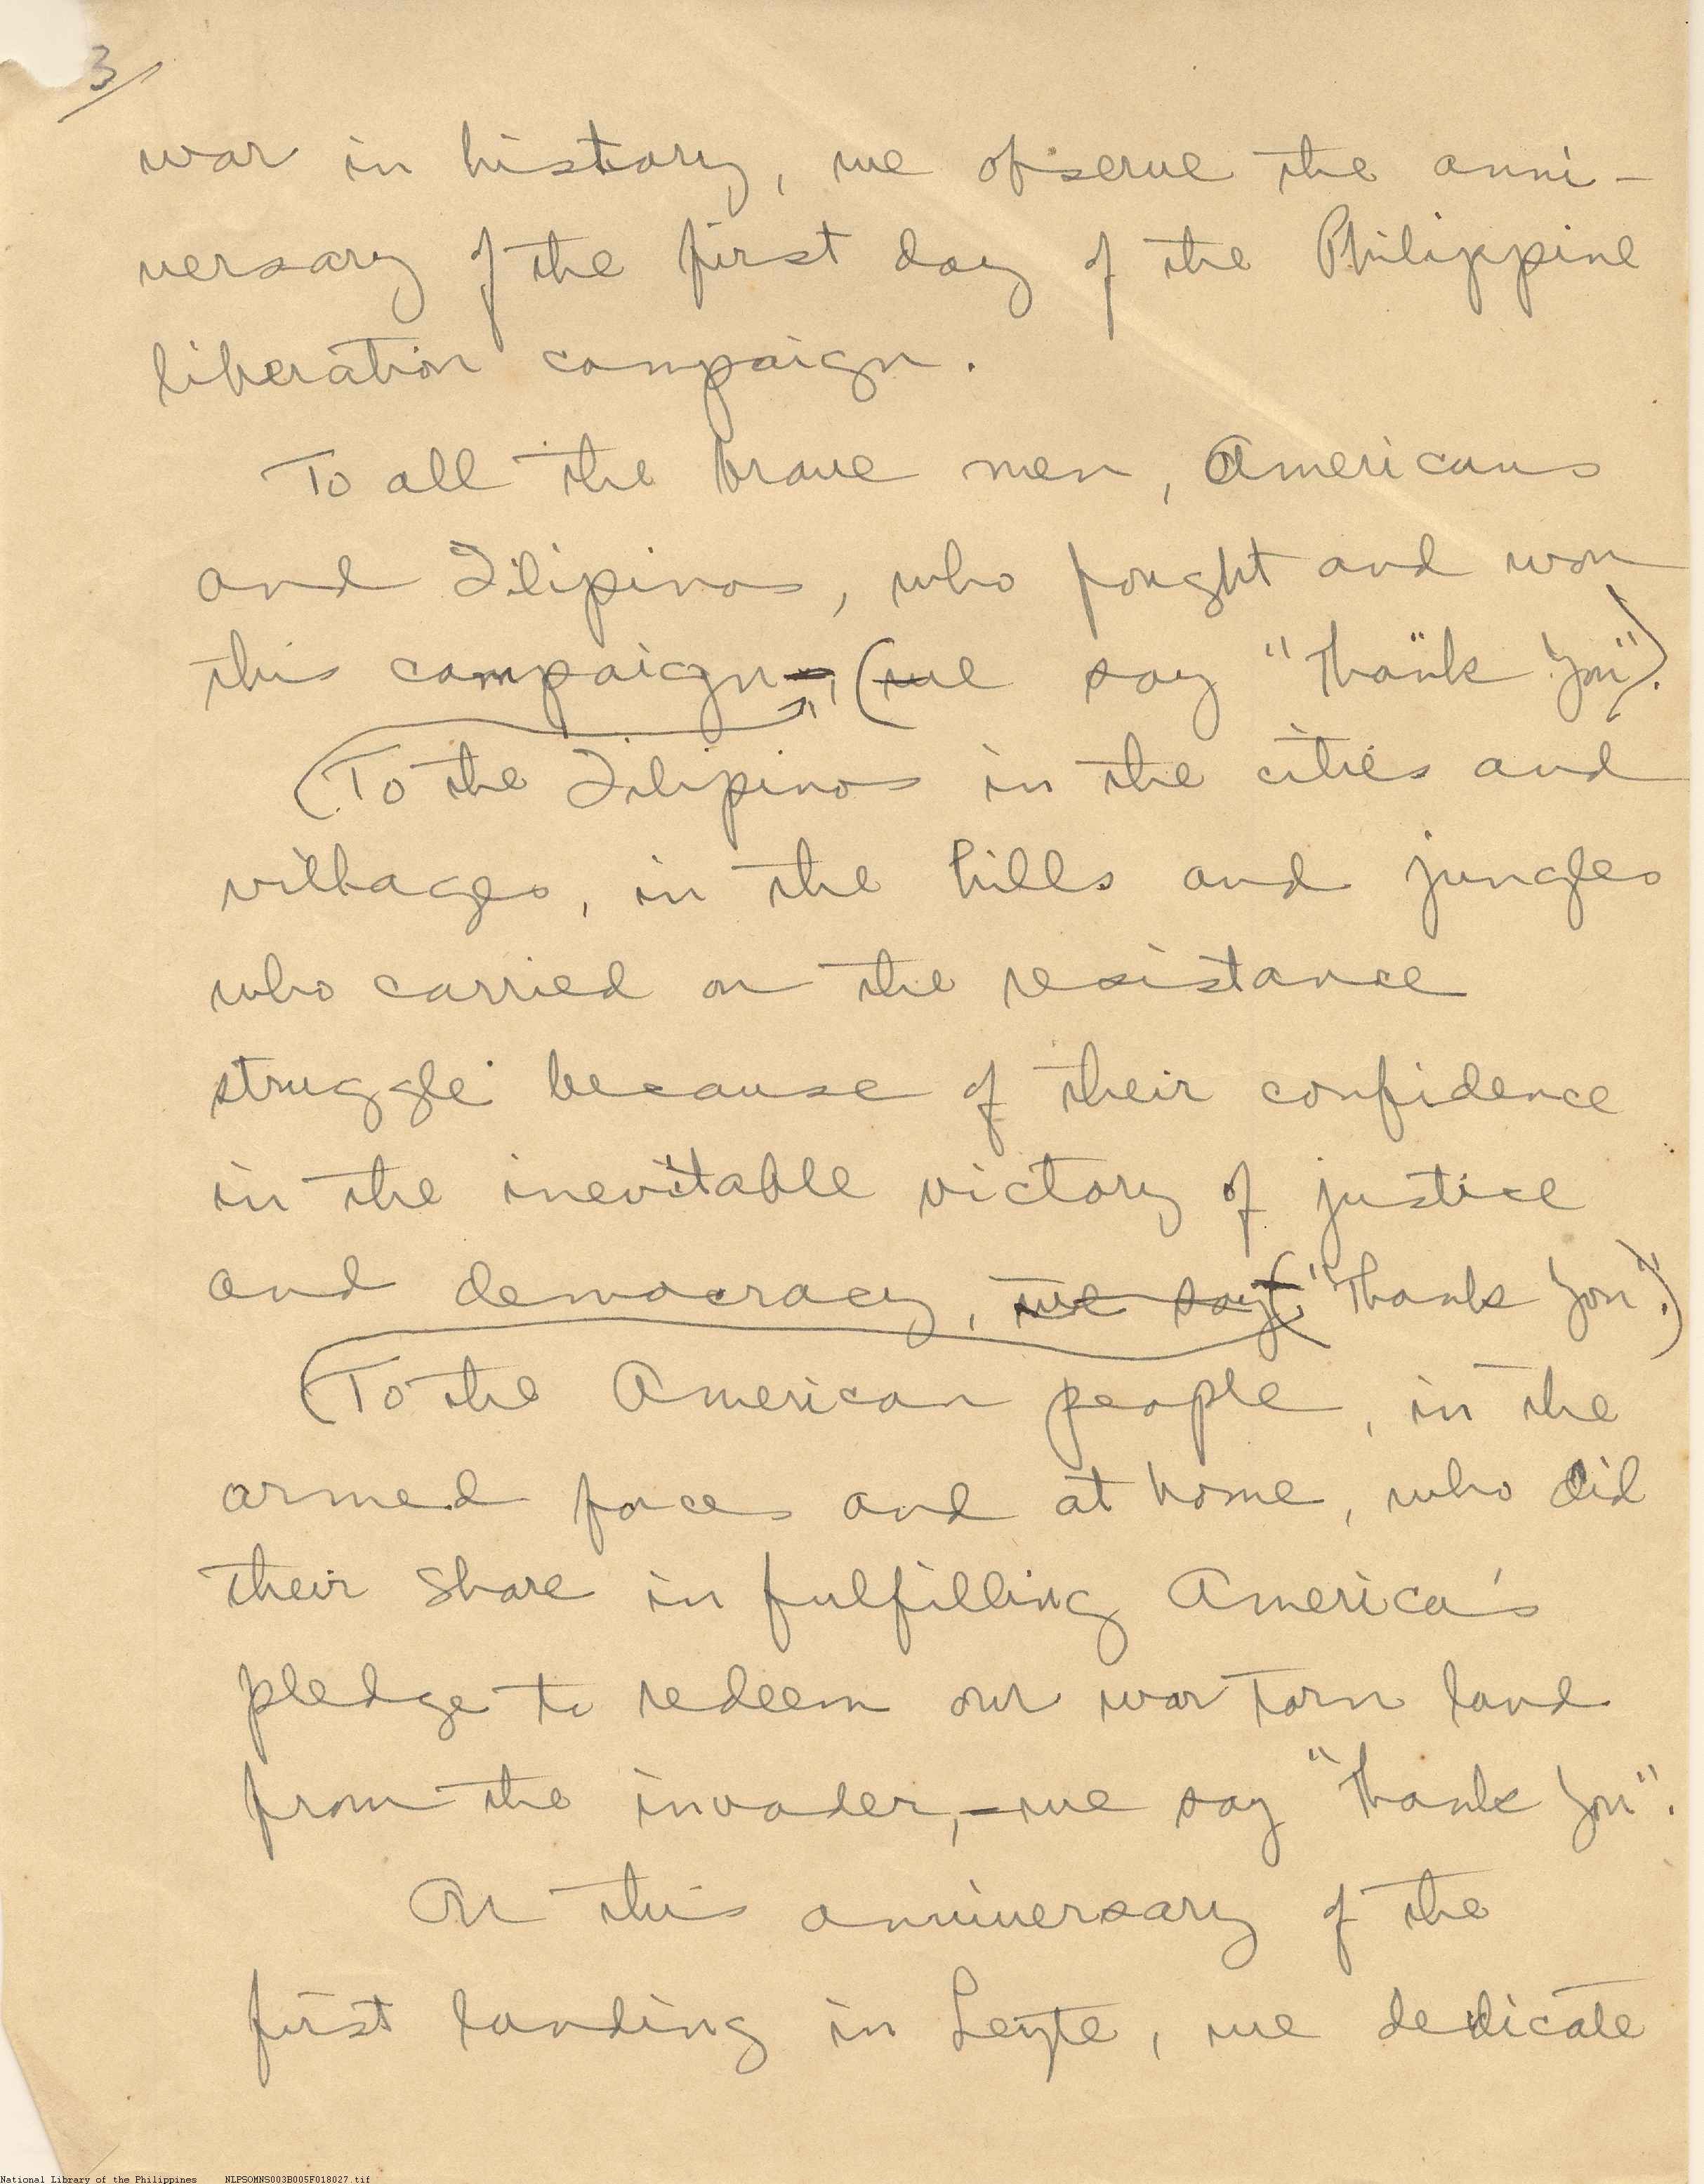 3/
war in history, we observe the anni-
versary of the first day of the Philippine
liberation campaign.
To all the brave men, Americans
and Filipinos, who fought and won
this campaign, (we say "Thank You").
(To the Filipinos in the cities and
villages, in the hills and jungles
who carried on the resistance
struggle because of their confidence
in the inevitable victory of justice
and democracy, we say ("Thank You".)
(To the American people, in the
armed forces and at home, who did
their share in fulfilling America's
pledge to redeem our war torn land
from the invader, - we say "Thank You".
On this anniversary of the
first landing in Leyte, we dedicate
National Library of the Philippines NLPSOMNS003B005F018027.tif